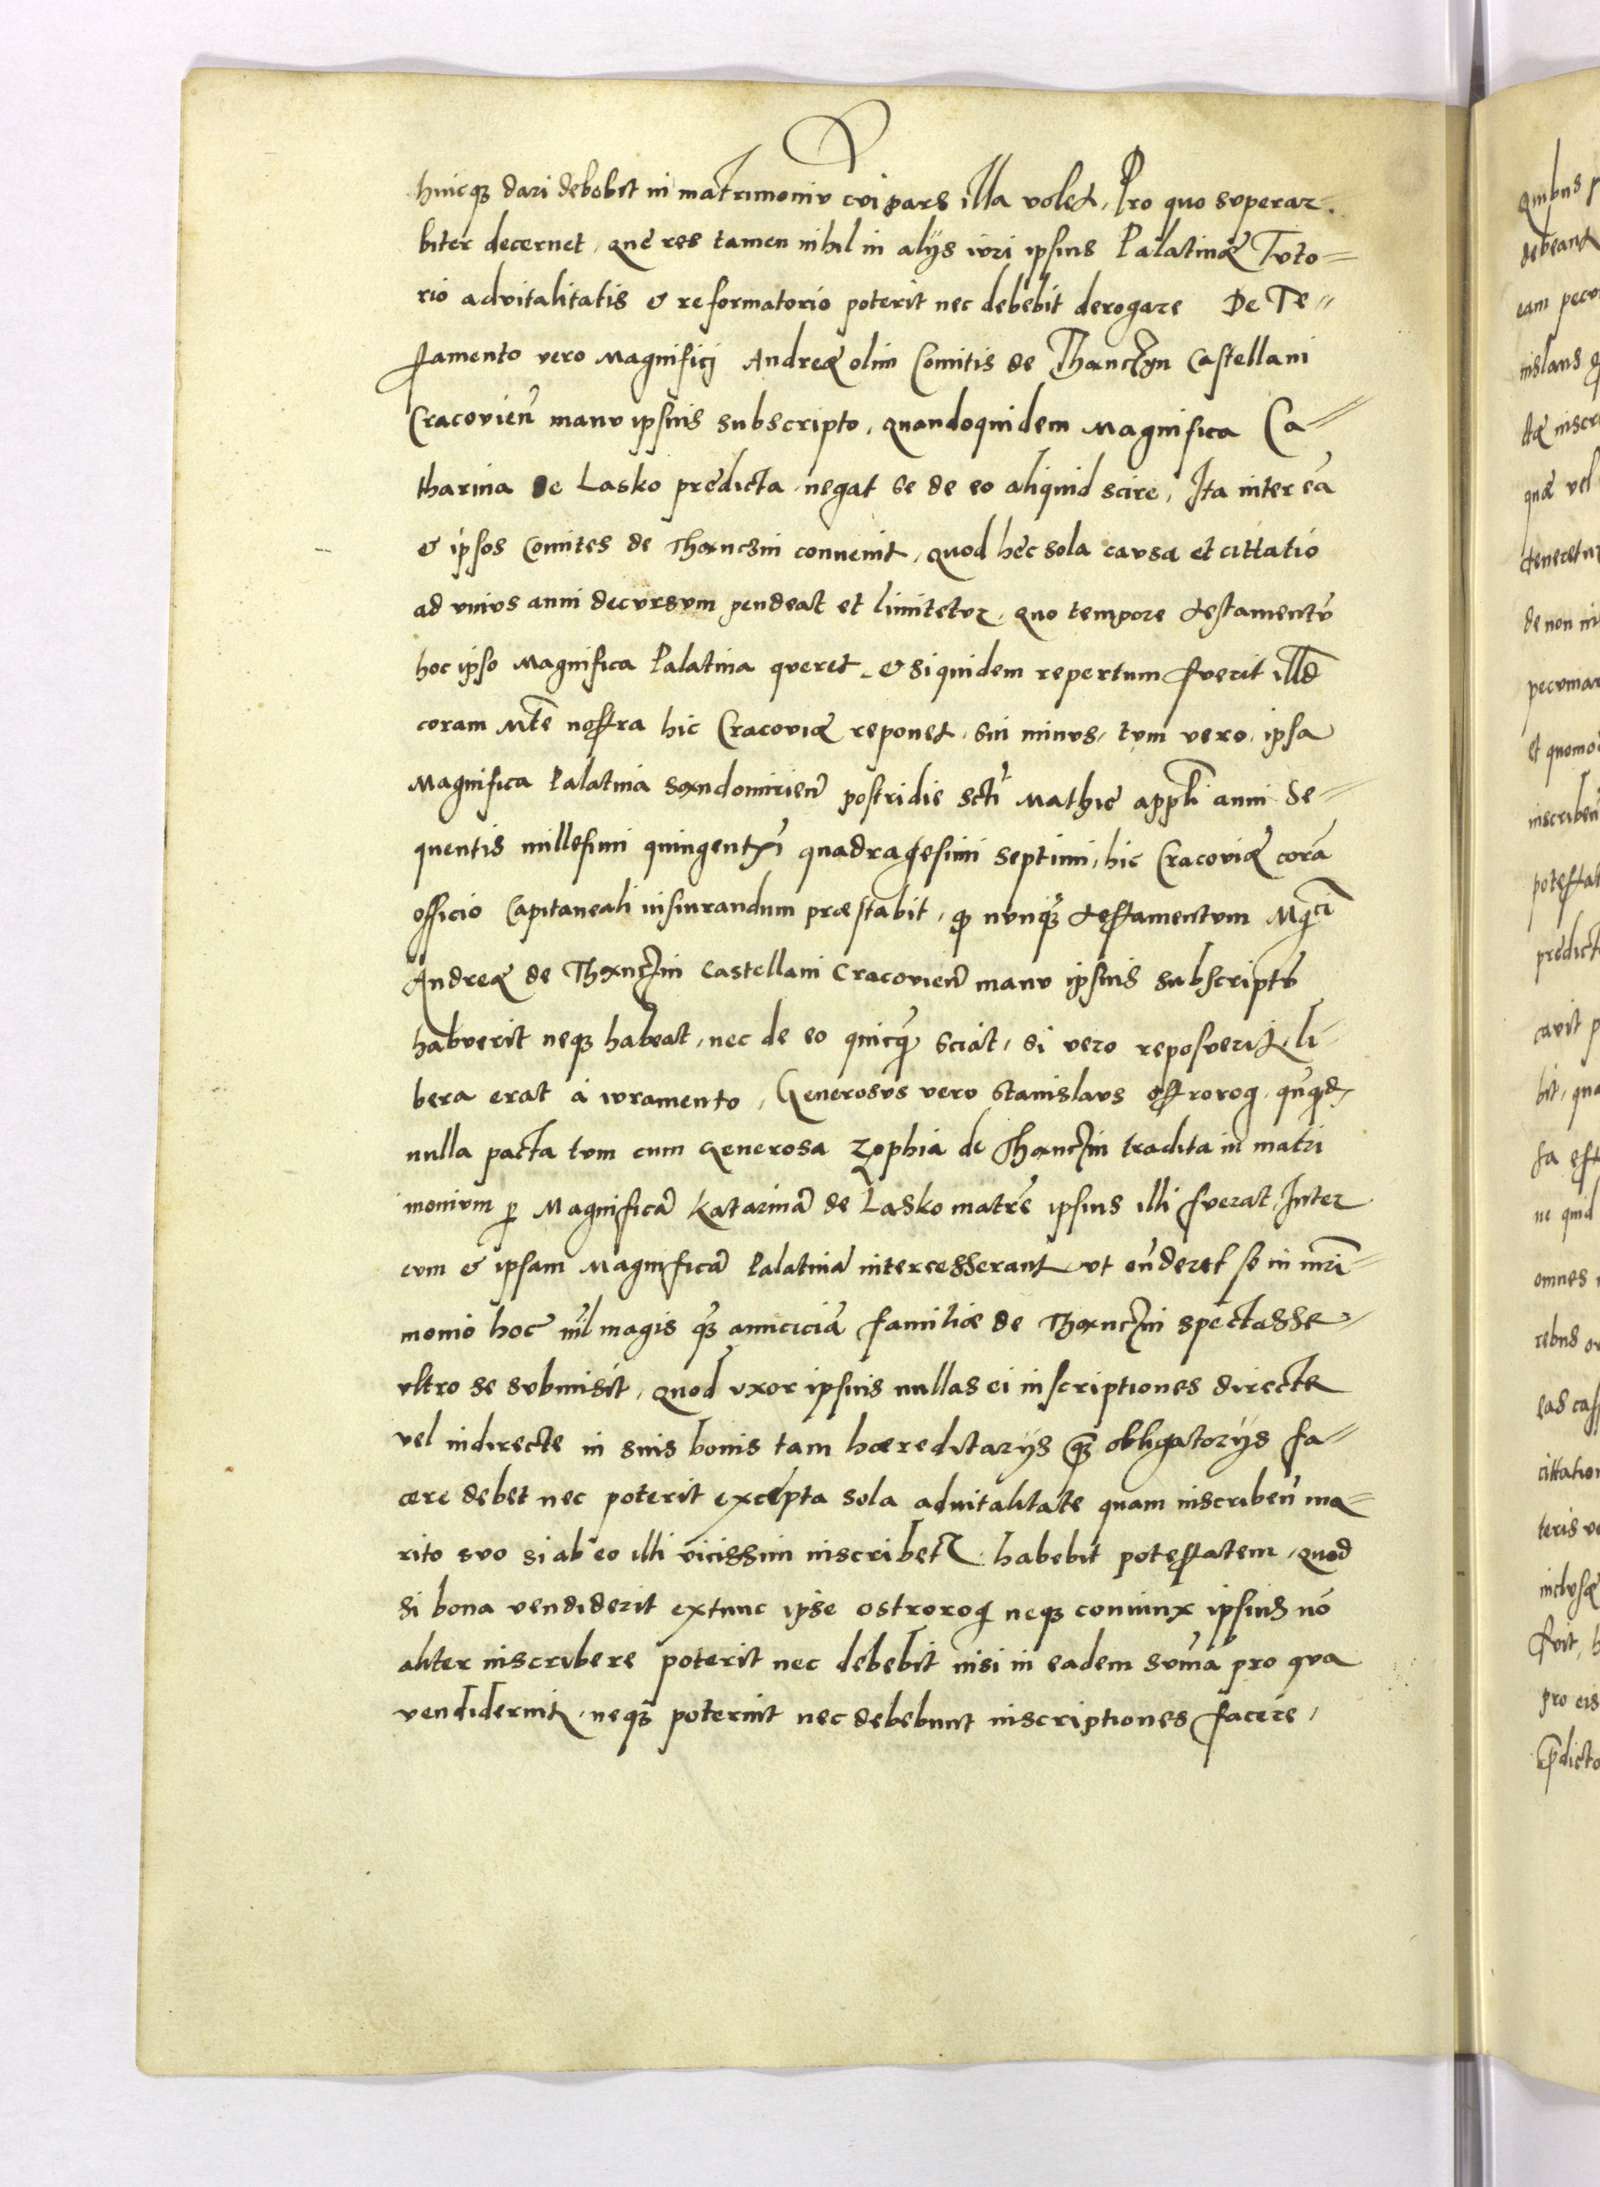 huicq3 dari debebit in matrimoniu cui pars illa volet, Pro quo superar-
biter decernet, que res tamen nihil in alijs iuri ipsius Palatinę Tuto=
rio advitalitatis & reformatorio poterit nec debebit derogare De Te=
stamento vero Magnificj Andreę olim Comitis de Thanczyn Castellani
Cracovien̄ manu ipsius subscripto, quandoquidem Magnifica Ca=
tharina de Lasko predicta negat se de eo aliquid scire, Ita inter eā
& ipsos Comites de Thanczin convenit, quod hec sola causa et cittatio
ad unius anni decursum pendeat et limitetur, quo tempore testamentū
hoc ipso Magnifica Palatina queret, & siquidem repertum fuerit illd
coram Mte nostra hic Cracovię reponet, sin minus, tum vero ipsa
Magnifica Palatina Sandomirien̄ postridie scti Mathie appli anni Se=
quentis millesimi quingentesi quadragesimi septimi, hic Cracovię corā
officio Capitaneali iusiurandum præstabit, q nunq3 testamentum Mgci
Andreę de Thanczin Castellani Cracovien̄ manu ipsius subscriptū
habuerit neq3 habeat, nec de eo quicq̄ sciat, si vero reposuerit, li=
bera erat á iuramento, Generosus vero Stanislaus Ostrorog, qn̄qd,
nulla pacta tum cum Generosa Zophia de Thanczin tradita in matri
monium p Magnificā Katarinā de Lasko matrē ipsius illi fuerat, Inter
eum & ipsam Magnificā Palatinā intercesserant ut on̄deret se in mr̄i=
monio hoc nīl magis q3 amiciciā familiæ de Thanczin spectasse,
ultro se submisit, quod uxor ipsius nullas ei inscriptiones directe
vel indirecte in suis bonis tam hæreditarijs q3 obligatorijs fa=
cere debet nec poterit excepta sola advitalitate quam inscriben̄ ma=
rito suo si ab eo illi vicissim inscribetr habebit potestatem, quod
si bona vendiderit extunc ipse Ostrorog neq3 coniunx ipsius nō
aliter inscribere poterit nec debebit nisi in eadem sum̄a pro qua
vendiderint, neq3 poterint nec debebunt inscriptiones facere,